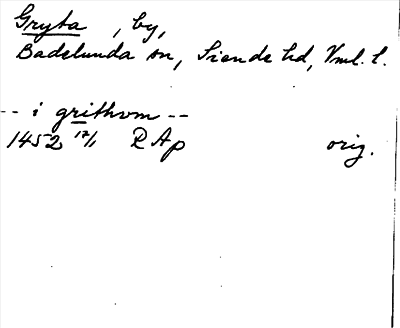 Gryta, by,
Badelunda sn, Siende hd, Vml. l.
-- i grithom --
1452 17/1 RAp orig.